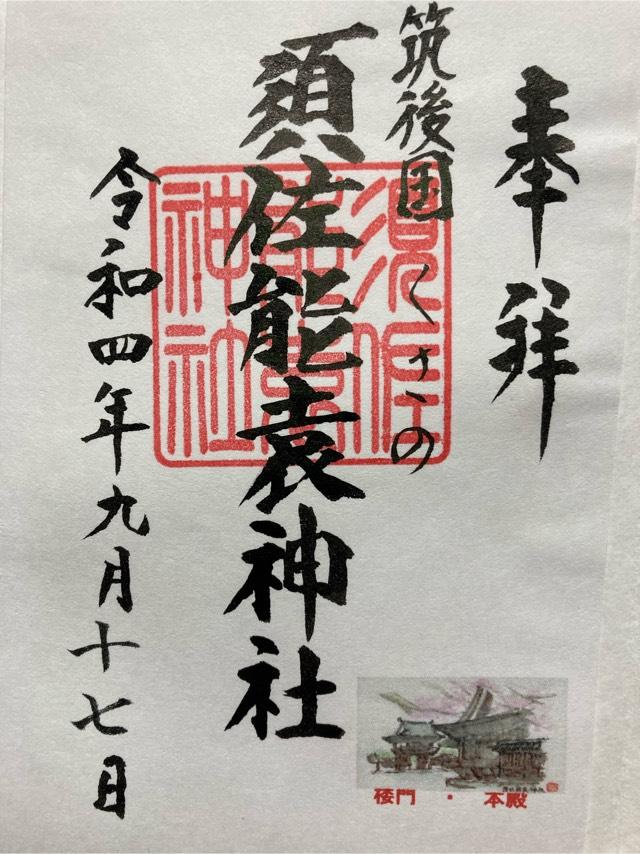 奉拝
筑後国くさの
須佐能袁神社
須佐能袁神社
令和四年九月十七日
楼門・本殿